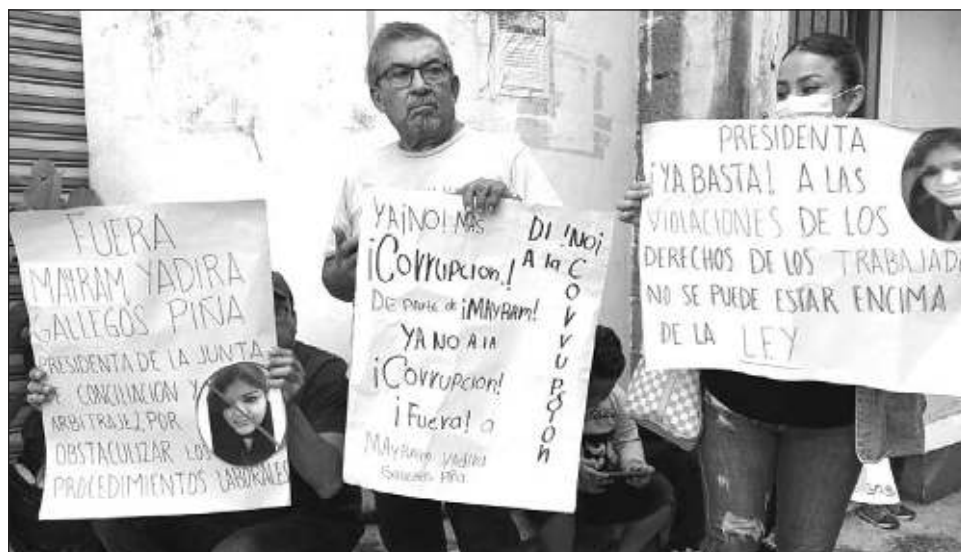 FUERA
MAYRAM YADIRA
GALLEGOS PIÑA
PRESIDENTA DE LA JUNTA
E CONCILIACION Y
ARBITRAJEZ POR
OBSTACULIZAR LOS
PROCEDIMIENTOS LABORALES
YA¡NO! MAS
¡CORRUPCION!
DE PARTE DE ¡MAYRAM!
YA NO A LA
¡CORRUPCION!
¡Fuera! a
MAYRAM YADIRA
GALLEGOS PIÑA
DI !NO¡
A la
CORRUPCION
PRESIDENTA
¡YA BASTA! A LAS
VIOLACIONES DE LOS
DERECHOS DE LOS TRABAJAD
NO SE PUEDE ESTAR ENCIMA
DE LA LEY